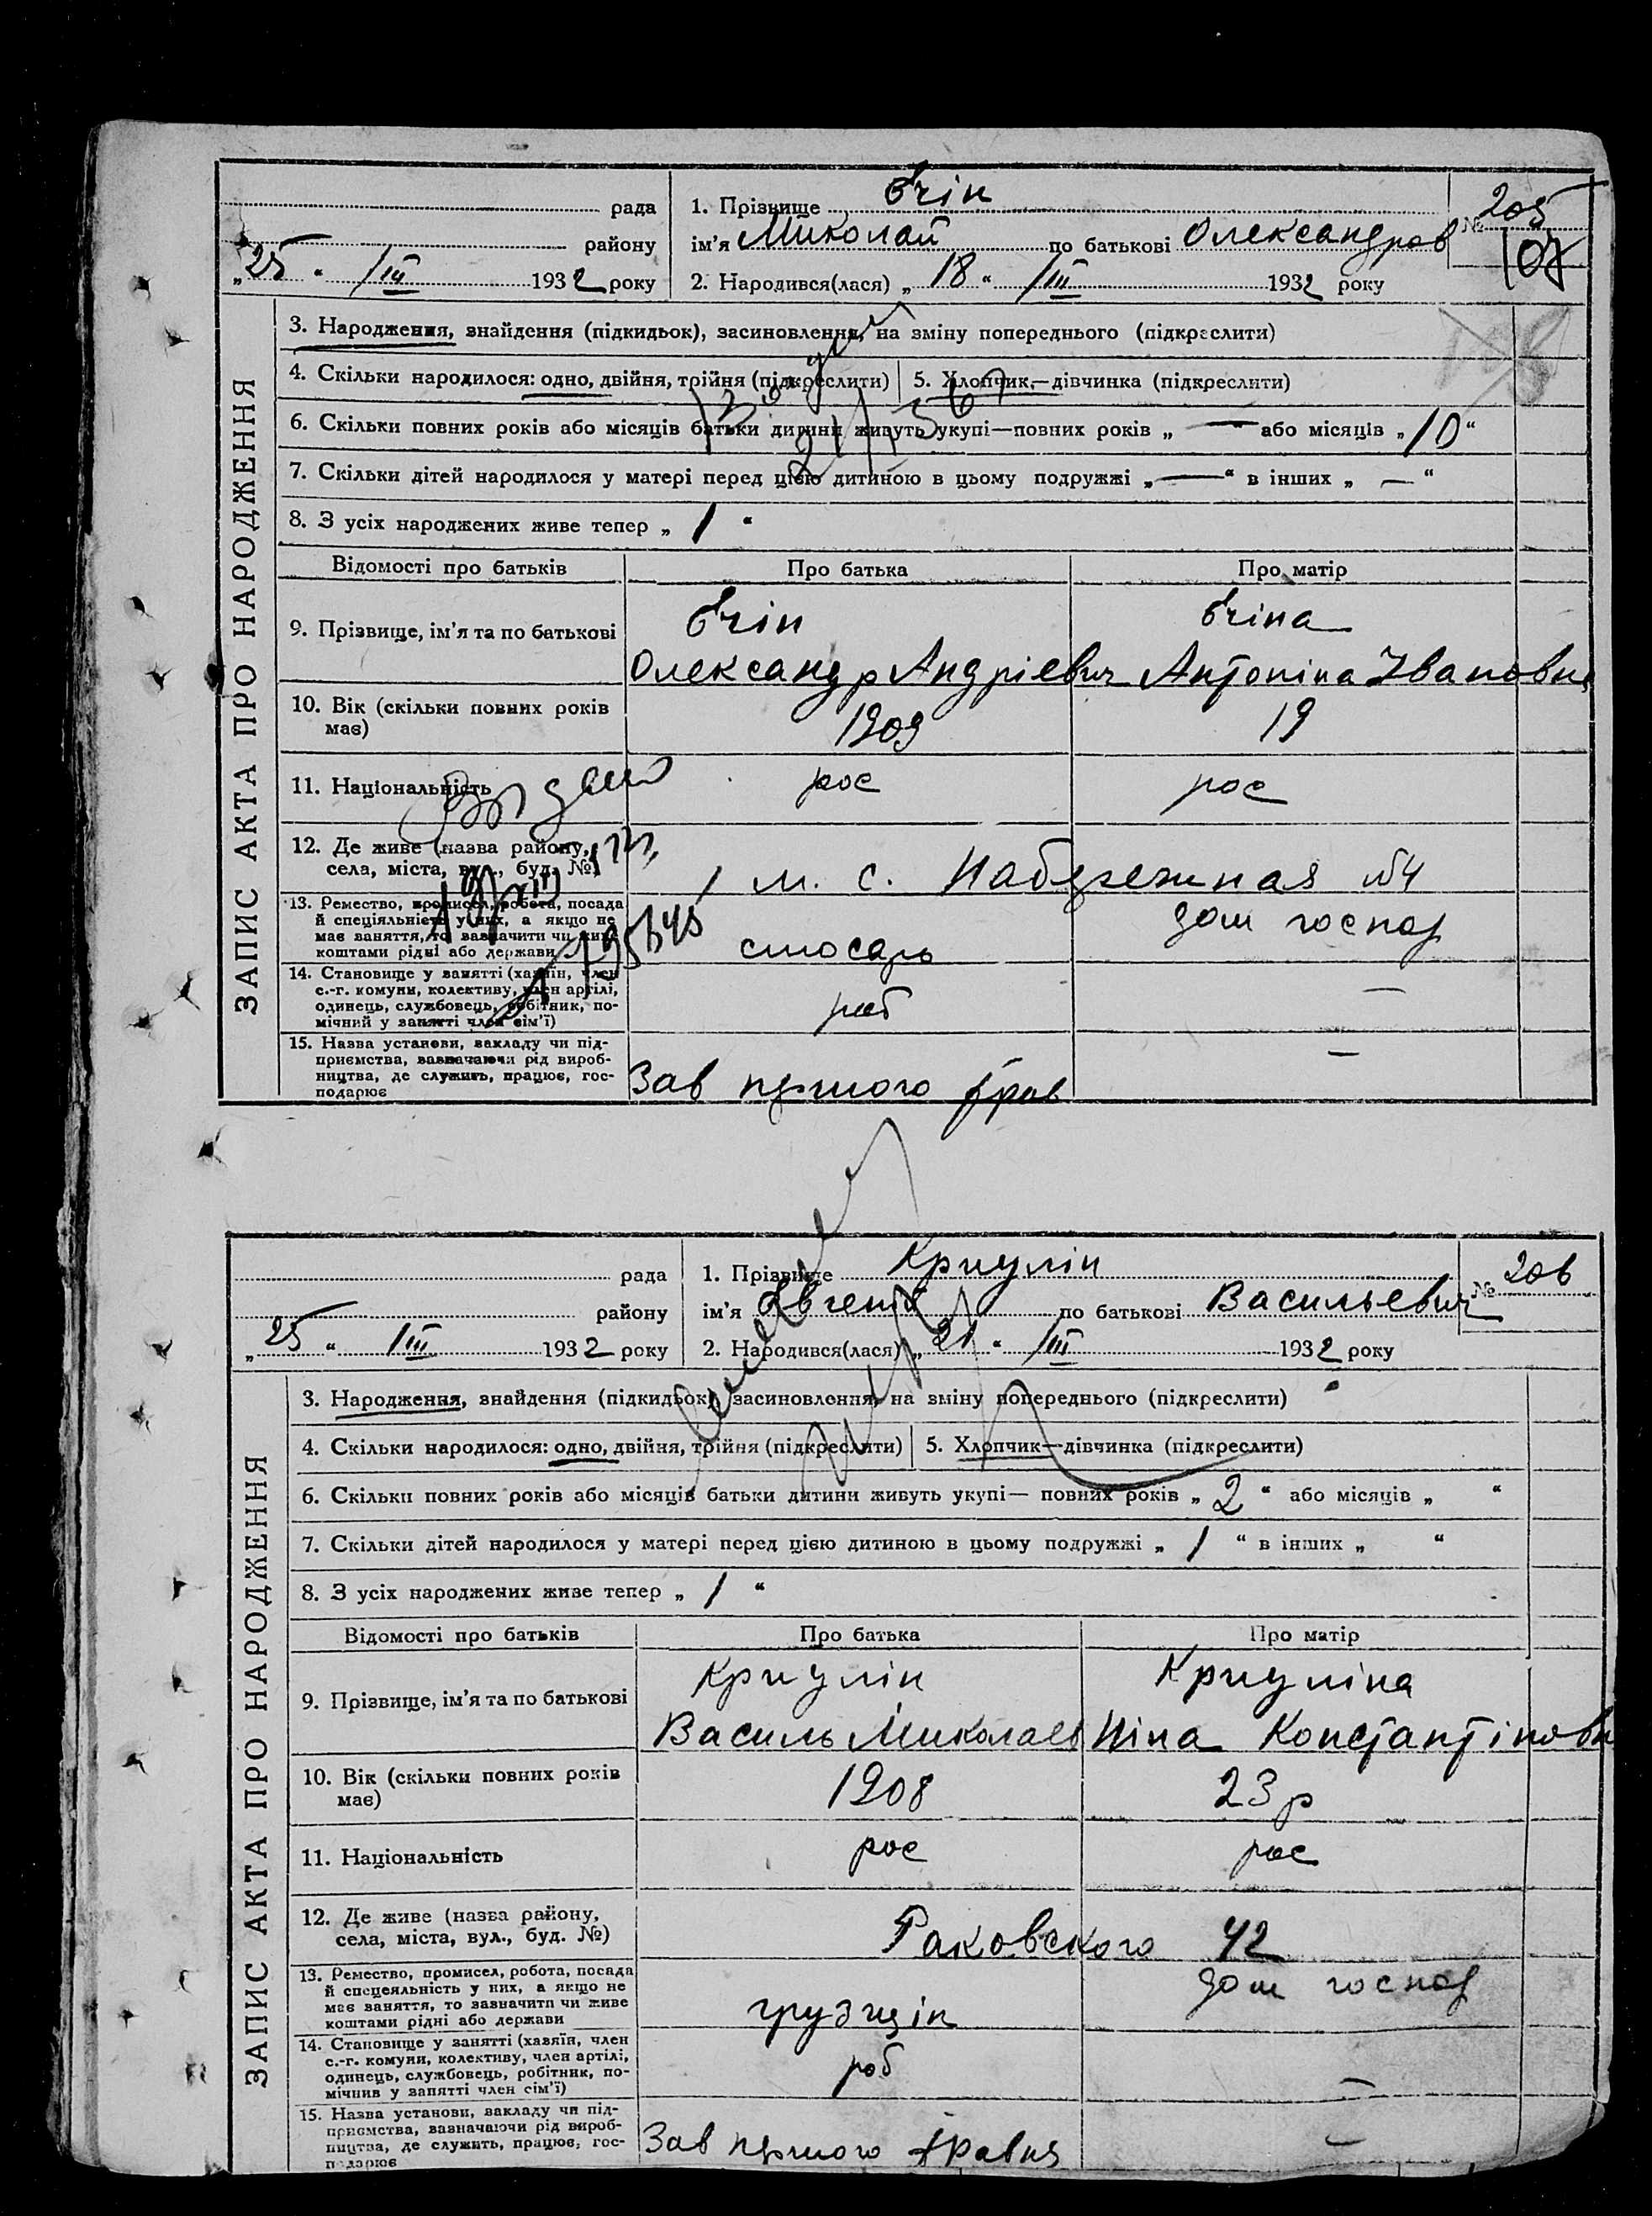 рада
району
„25“ III 1932 року
1. Прізвище
ім’я Миколай по батькові Олександров
2. Народився(лася) „18“ III 1932 року
№ 205
107
ЗАПИС АКТА ПРО НАРОДЖЕННЯ
3. Народження, знайдення (підкидьок), засиновлення, на зміну попереднього (підкреслити)
4. Скільки народилося: одно, двійня, трійня (підкреслити)
5. Хлопчик—дівчинка (підкреслити)
6. Скільки повних років або місяців батьки дитини живуть укупі—повних років „—“ або місяців „10“
7. Скільки дітей народилося у матері перед цією дитиною в цьому подружжі „—“ в інших „—“
8. З усіх народжених живе тепер „1“
Відомості про батьків Про батька Про матір
9. Прізвище, ім’я та по батькові
Олександр Андріевич Антоніна Івановна
10. Вік (скільки повних років
має)
1909 19
11. Національність рос рос
12. Де живе (назва району,
села, міста, вул., буд. №)
м. с. Набережная №4
13. Ремество, промисел, робота, посада
й спеціяльність у них, а якщо не
має заняття, то зазначити чи живе
коштами рідні або держави
слюсарь дом господ
14. Становище у занятті (хазяїн, член
с.-г. комуни, колективу, член артілі,
одинець, службовець, робітник, по-
мічний у занятті член сім’ї)
роб —
15. Назва установи, закладу чи під-
приємства, зазначаючи рід вироб-
ництва, де служить, працює, гос-
подарює
Зав першого трав —
рада
району
„25“ III 1932 року
1. Прізвище Криулін
ім’я Євгеній по батькові Васильевич
2. Народився(лася) „21“ III 1932 року
№ 206
ЗАПИС АКТА ПРО НАРОДЖЕННЯ
3. Народження, знайдення (підкидьок), засиновлення, на зміну попереднього (підкреслити)
4. Скільки народилося: одно, двійня, трійня (підкреслити)
5. Хлопчик—дівчинка (підкреслити)
6. Скільки повних років або місяців батьки дитини живуть укупі— повних років „2“ або місяців „ “
7. Скільки дітей народилося у матері перед цією дитиною в цьому подружжі „1“ в інших „ “
8. З усіх народжених живе тепер „1“
Відомості про батьків Про батька Про матір
9. Прізвище, ім’я та по батькові
Криулін Криуліна
Василь Миколаев Ніна Константіновн
10. Вік (скільки повних років
має)
1908 23 р
11. Національність рос рос
12. Де живе (назва району,
села, міста, вул., буд. №)
Раковского 42
13. Ремество, промисел, робота, посада
й спецеяльність у них, а якщо не
має заняття, то зазначити чи живе
коштами рідні або держави
грузщік дом господ
14. Становище у занятті (хазяїн, член
с.-г. комуни, колективу, член артілі,
одинець, службовець, робітник, по-
мічнив у занятті член сім’ї)
роб —
15. Назва установи, закладу чи під-
приємства, зазначаючи рід вироб-
ництва, де служить, працює, гос-
подарює
Зав першого травня —